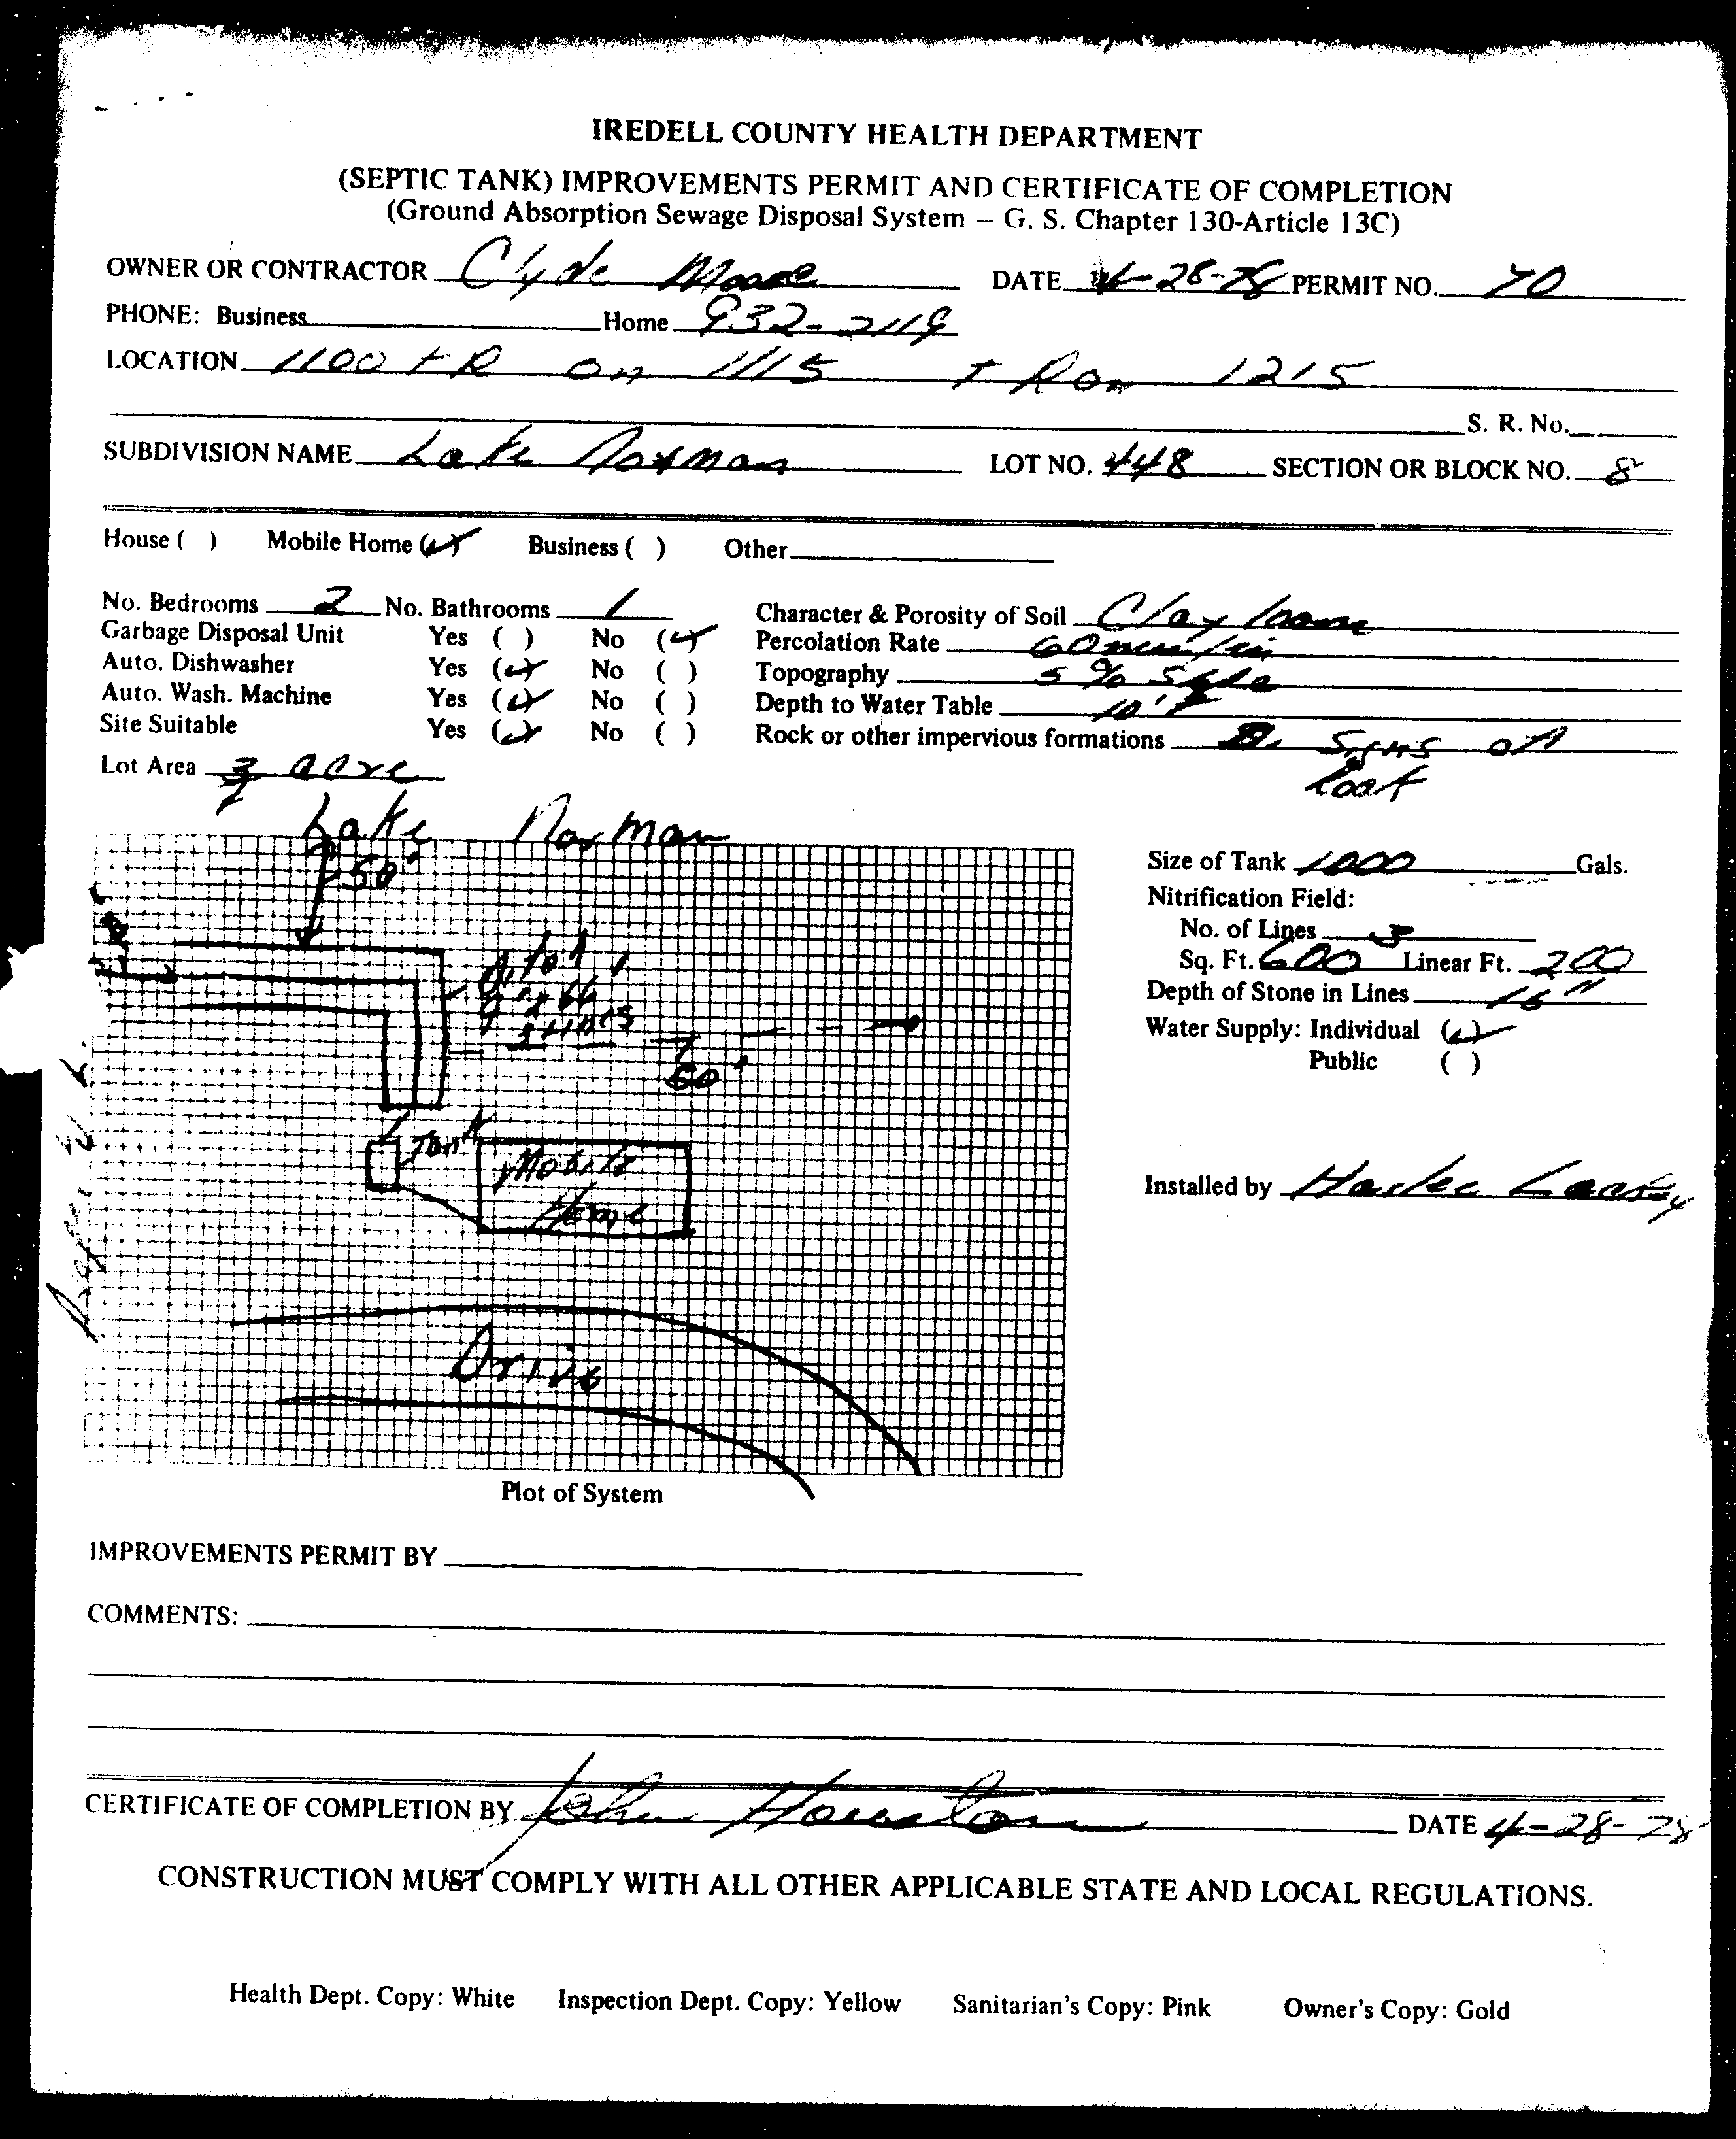 IREDELL COUNTY HEALTH DEPARTMENT
(SEPTIC TANK) IMPROVEMENTS PERMIT AND CERTIFICATE OF COMPLETION
(Ground Absorption Sewage Disposal System – G. S. Chapter 130-Article 13C)
OWNER OR CONTRACTOR Clyde Moore DATE 4-28-78 PERMIT NO. 70
PHONE: Business Home 932-2119
LOCATION 1100 + R on 1115 + R on 1215
S. R. No.
SUBDIVISION NAME Lake Norman LOT NO. 448 SECTION OR BLOCK NO. 8
House ( ) Mobile Home (✓) Business ( ) Other
No. Bedrooms 2 No. Bathrooms 1 Character & Porosity of Soil Clay loam
Garbage Disposal Unit Yes ( ) No (✓) Percolation Rate 60 min/in
Auto. Dishwasher Yes (✓) No ( ) Topography 5% Slope
Auto. Wash. Machine Yes (✓) No ( ) Depth to Water Table 10'
Site Suitable Yes (✓) No ( ) Rock or other impervious formations Signs of
Lot Area 3/4 acre
Lake Norman
50'
Size of Tank 1000 Gals.
Nitrification Field:
No. of Lines 3
Sq. Ft. 600 Linear Ft. 200
Depth of Stone in Lines 16"
Water Supply: Individual (✓)
Public ( )
60'
Tank
Mobile
Home
Installed by Harlee Lackey
Drive
Plot of System
IMPROVEMENTS PERMIT BY
COMMENTS:
CERTIFICATE OF COMPLETION BY John Houston DATE 4-28-78
CONSTRUCTION MUST COMPLY WITH ALL OTHER APPLICABLE STATE AND LOCAL REGULATIONS.
Health Dept. Copy: White Inspection Dept. Copy: Yellow Sanitarian's Copy: Pink Owner's Copy: Gold